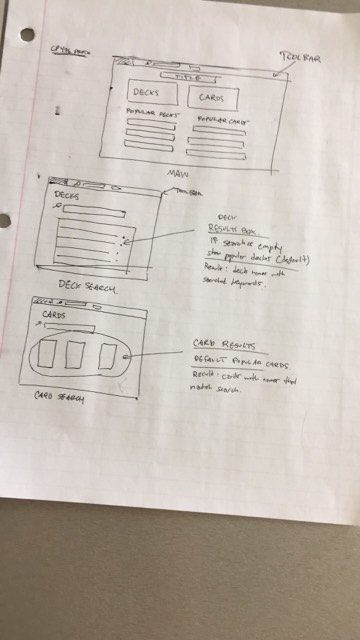 TOOLBAR
TITLE
DECKS
CARDS
POPULAR DECKS
POPULAR CARDS
MAIN
DECKS
DECK SEARCH
DECK
RESULTS BOX
If search is empty
show popular decks (default)
Result: deck names with
searched keywords.
CARDS
CARD SEARCH
CARD RESULTS
DEFAULT POPULAR CARDS
Result: cards with names that
match search.